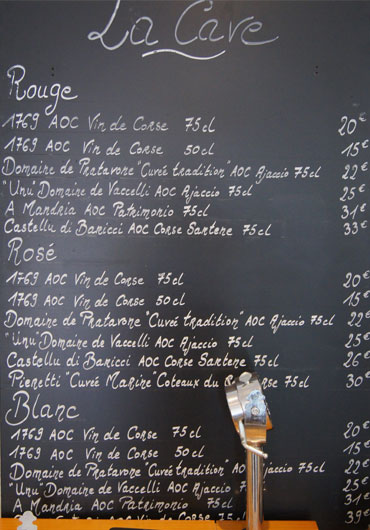 La Cave
Rouge
1769 AOC Vin de Corse 75cl 20€
1769 AOC Vin de Corse 50cl 15€
Domaine de Pratavone "Cuvé tradition" AOC Ajaccio 75cl 22€
"Unu" Domaine de Vaccelli AOC Ajaccio 75cl 25€
A Mandria AOC Patrimonio 75cl 31€
Castellu di Baricci AOC Corse Sartene 75cl 33€
Rosé
1769 AOC Vin de Corse 75cl 20€
1769 AOC Vin de Corse 50cl 15€
Domaine de Pratavone "Cuvé tradition" AOC Ajaccio 75cl 22€
"Unu" Domaine de Vaccelli AOC Ajaccio 75cl 25€
Castellu di Baricci AOC Corse Sartene 75cl 26€
Pieretti "Cuvée Marine Coteaux du 75cl 30€
Blanc
1769 AOC Vin de Corse 75cl 20€
1769 AOC Vin de Corse 50cl 15€
Domaine de Pratavone "Cuvé tradition" AOC Ajaccio 75cl 22€
"Unu" Domaine de Vaccelli AOC Ajaccio 75cl 25€
A Mandria AOC Patrimonio 75cl 31€
AOC Corse Sartene 75cl 39€